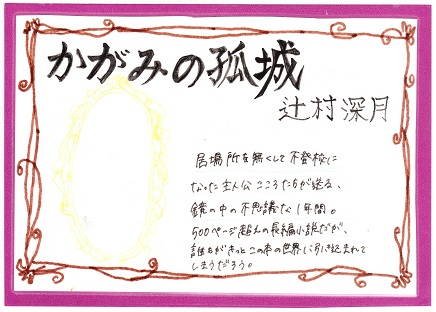 かがみの孤城
辻村深月
居場所を無くして不登校に
なった主人公こころたちが送る、
鏡の中の不思議な1年間。
500ページ超えの長編小説だが、
誰もがきっとこの本の世界に引き込まれて
しまうだろう。